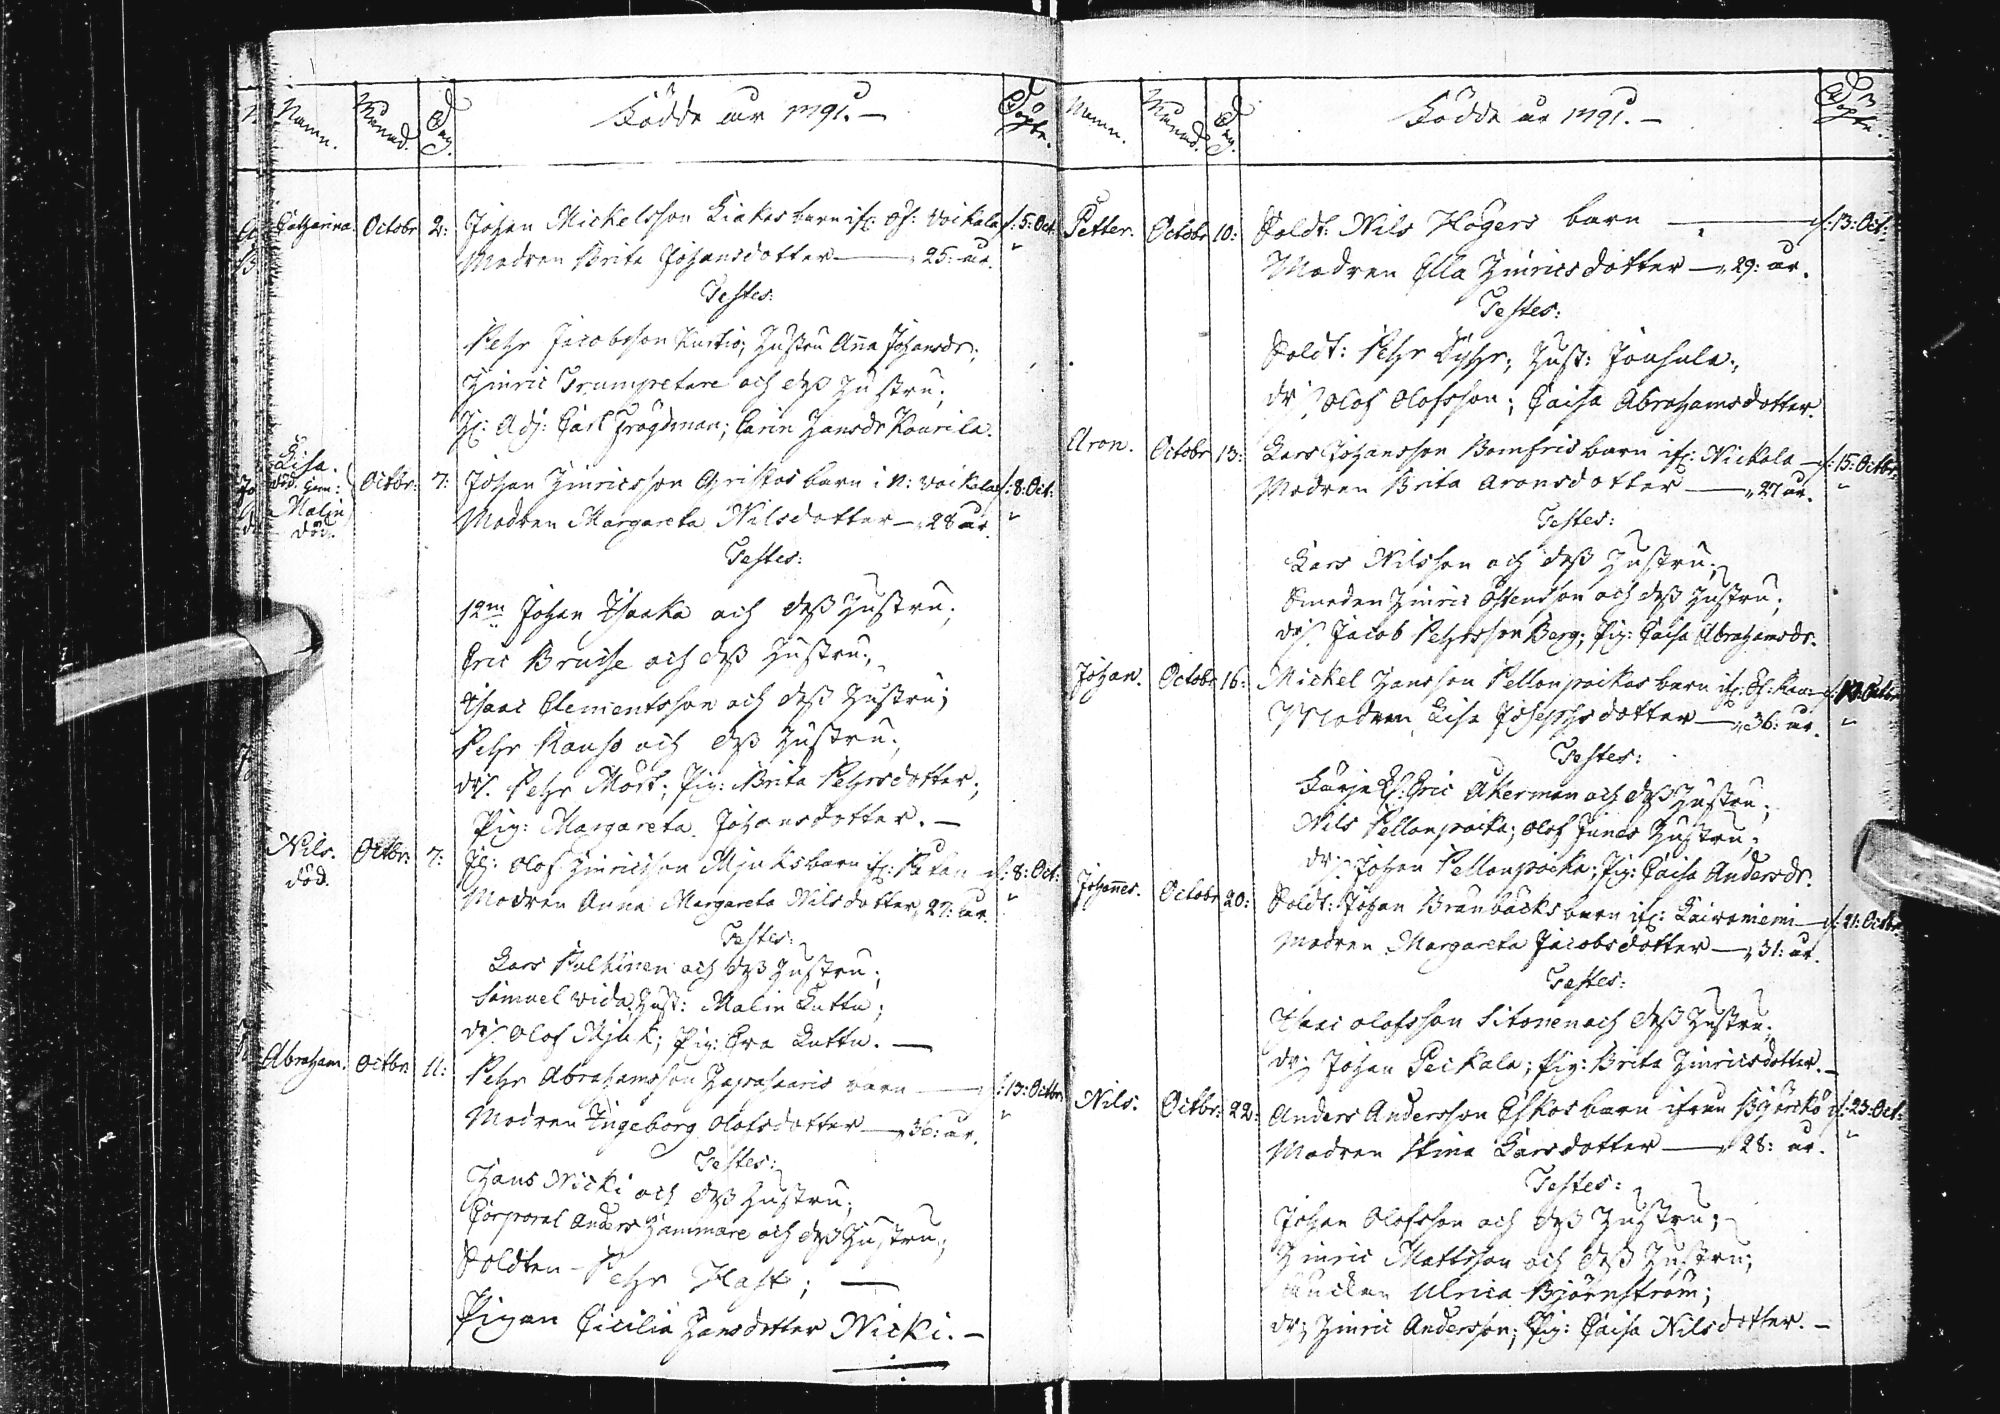 Namn. Månad. Dag. Födde år 1791. — Döpte.
Catharina. Octobr 2: Johan Mickelsson Kiakas barn ifr: Öf: Voikala d: 5: Oct:
Modren Brita Johansdotter — 25: år.
Testes:
Pehr Jacobsson Kurtio; Hustru Anna Johansdr;
Hinric Trumpetare och deß Hustru;
Hr: Adj: Carl Frögdman; Carin Hansdr Kourila.
Lisa.
död. Gem:
Malin
död.
Octbr: 7: Johan Hinricsson Gristas barn i N: Voikala d: 8: Oct:
Modren Margareta Nilsdotter — 28 år.
Testes:
12m Johan Isaaka och deß Hustru;
Eric Bruse och deß Hustru;
Isaac Clementsson och deß Hustru;
Pehr Kauso och deß Hustru;
dr. Pehr Mört; Pig: Brita Pehrsdotter;
Pig: Margareta Johansdotter. —
Nils. Octbr: 7: Olof Hinricsson Mjuks barn ifr: d: 8: Oct:
död.
Modren Anna Margareta Nilsdotter, 27: år.
Testes:
Lars Pulkinen och deß Hustru;
Samuel Vida Hust: Malin Kuttu;
dr. Olof Mjuk; Pig: Eva Kuttu. —
Abraham. Octbr: 11: Pehr Abrahamsson Hapasaaris barn — d: 13: Octbr:
Modren Ingeborg Olofsdotter — 36: år.
Testes:
Hans Nicki och deß Hustru;
Corporal Anders Hammare och deß Hustru;
Soldten Pehr Hast; —
Pigan Cicilia Hansdotter Nicki. —
Namn. Månad. Dag. Födde år 1791. — Döpte.
Petter. Octobr 10: Soldt: Nils Högers barn — d: 13: Oct:
Modren Ella Hinricsdotter — 29: år.
Testes:
Soldt: Pehr Hust: Jouhula;
dr. Olof Olofsson; Caisa Abrahamsdotter.
Aron. Octobr 13: Lars Johansson Bomfris barn ifr: Nickala — d: 15: Octbr:
Modren Brita Aronsdotter — 27 år.
Testes:
Lars Nilsson och deß Hustru;
Smeden Hinric Östenson och deß Hustru;
dr. Jacob Pehrsson Berg; Pig: Caisa Abrahamsdr.
Johan. Octobr 16: Mickel Hansson Pellonpaikas barn ifr: Öf:
Modren Lisa Josephsdotter — 36: år.
Testes:
Eric Åkerman och deß Hustru;
Nils Pellonpaika; Olof Junes Hustru;
dr. Johan Pellonpaika; Pig: Caisa Andersdr.
Johannes. Octobr 20: Soldt: Johan Braunbäcks barn ifr: Kairaniemi — d: 21: Octbr:
Modren Margareta Jacobsdotter — 31: år.
Testes:
Isaac Olofsson Sitonen och deß Hustru;
dr; Johan Peickala; Pig: Brita Hinricsdotter. —
Nils. Octbr: 22: Anders Andersson Eskos barn ifrån Björckö d: 23: Oct:
Modren Stina Larsdotter — 28: år.
Testes:
Johan Olofsson och deß Hustru;
Hinric Mattsson och deß Hustru;
Ulrica Björnström;
dr; Hinric Andersson; Pig: Caisa Nilsdotter. —